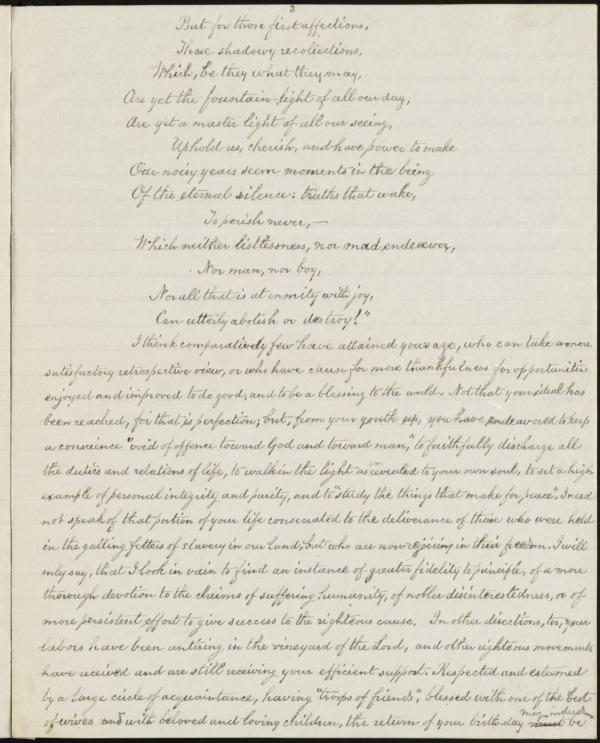 3
But for those first affections,
Those shadowy recollections,
Which, be they what they may,
Are yet the fountain-light of all our day,
Are yet a master light of all our seeing,
Uphold us, cherish, and have power to make
Our noisy years seem moments in the being
Of the eternal silence: truths that wake,
To perish never,—
Which neither listlessness, nor mad endeavor,
Nor man, nor boy,
Nor all that is at enmity with joy,
Can utterly abolish or destroy!"
I think comparatively few have attained your age, who can take a more
satisfactory retrospective view, or who have cause for more thankfulness for opportunities
enjoyed and improved to do good, and to be a blessing to the world. Not that your ideal has
been reached, for that is perfection; but, from your youth up, you have endeavored to keep
a conscience "void of offence toward God and toward man," to faithfully discharge all
the duties and relations of life, to walk in the light as revealed to your own soul, to set a high
example of personal integrity and purity, and to "study the things that make for peace". I need
not speak of that portion of your life consecrated to the deliverance of those who were held
in the galling fetters of slavery in our land, but who are now rejoicing in their freedom. I will
only say, that I look in vain to find an instance of greater fidelity to principle, of a more
thorough devotion to the claims of suffering humanity, of nobler disinterestedness, or of
more persistent effort to give success to the righteous cause. In other directions, too, your
labors have been untiring in the vineyard of the Lord, and other righteous movements
have received and are still receiving your efficient support. Respected and esteemed
by a large circle of acquaintance, having "troops of friends", blessed with one of the best
of wives and with beloved and loving children, the return of your birth-day must may indeed be